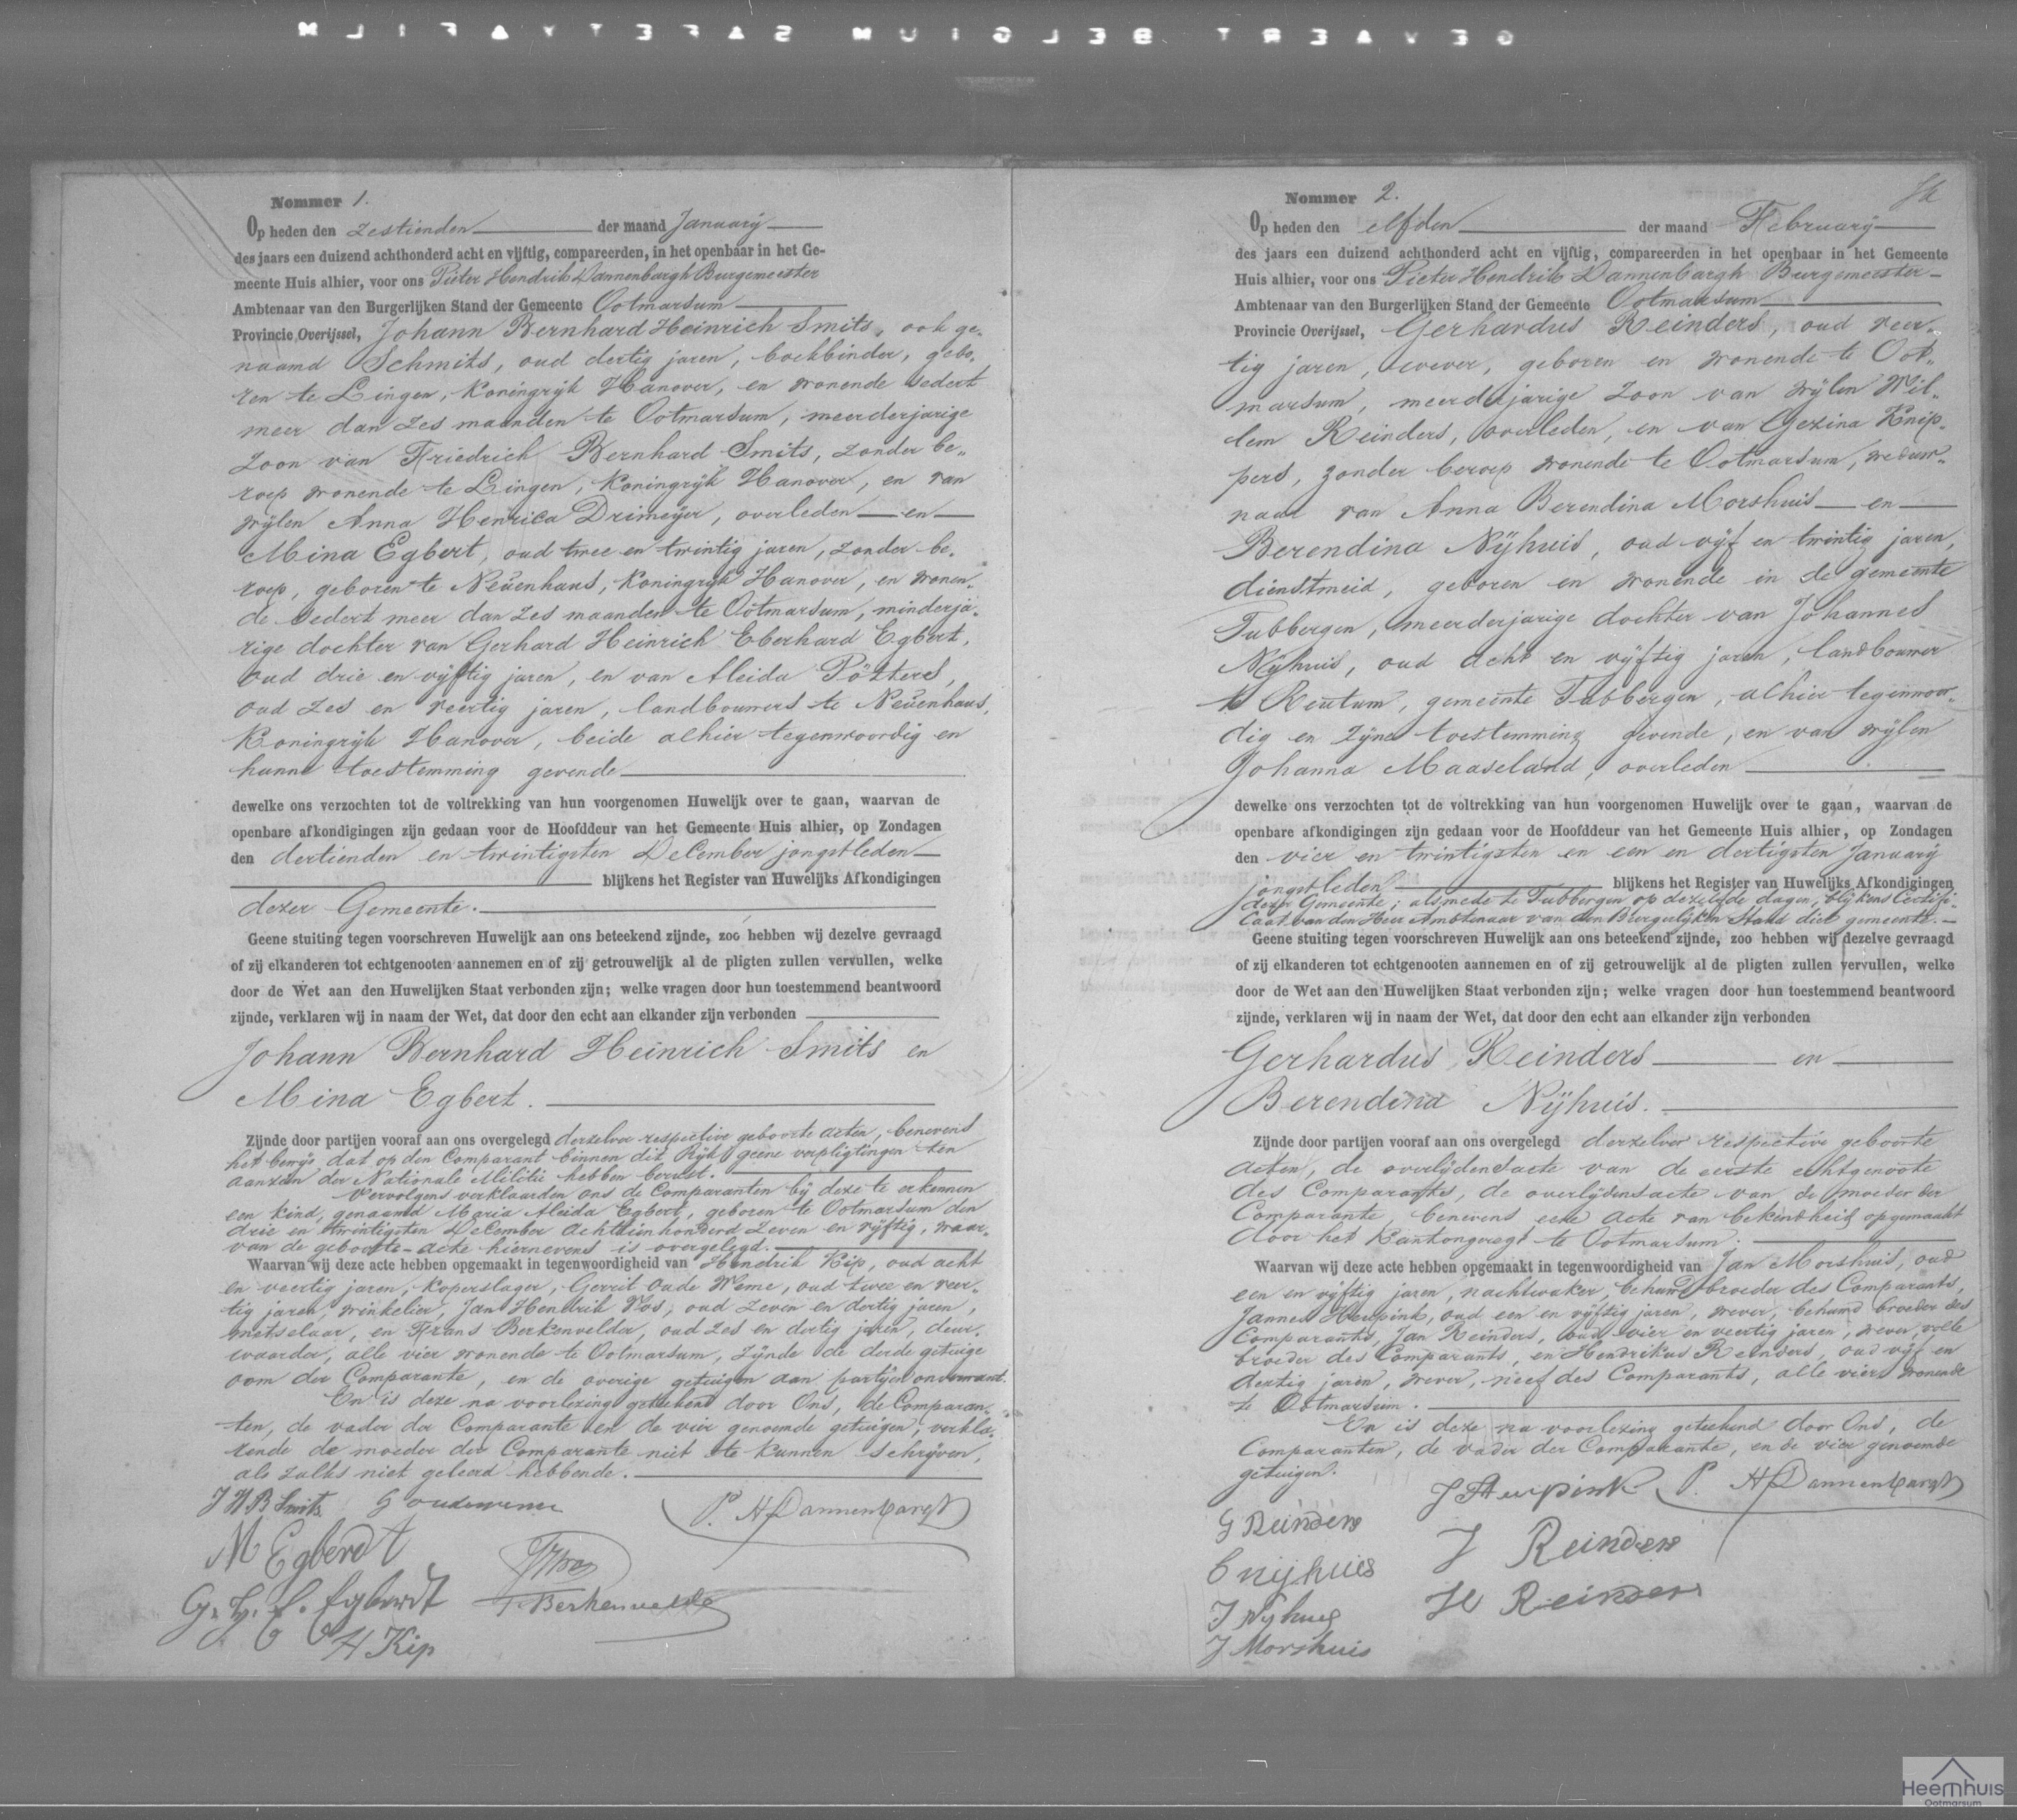 GEVAERT BELGIUM SAFETY FILM
Nommer 1.
Op heden den zestienden der maand January
des jaars een duizend achthonderd acht en vijftig, compareerden, in het openbaar in het Ge-
meente Huis alhier, voor ons Pieter Hendrik Dannenbargh Burgemeester
Ambtenaar van den Burgerlijken Stand der Gemeente Ootmarsum
Provincie Overijssel, Johann Bernhard Heinrich Smits, ook ge-
naamd Schmits, oud dertig jaren, boekbinder, gebo-
ren te Lingen, Koningryk Hanover, en wonende sedert
meer dan zes maanden te Ootmarsum, meerderjarige
zoon van Friedrich Bernhard Smits, zonder be-
roep wonende te Lingen, Koningryk Hanover, en van
wylen Anna Henrica Drimeyer, overleden en
Mina Egbert, oud twee en twintig jaren, zonder be-
roep, geboren te Neuenhaus, Koningryk Hanover, en wonen-
de sedert meer dan zes maanden te Ootmarsum, minderja-
rige dochter van Gerhard Heinrich Eberhard Egbert,
oud drie en vyftig jaren, en van Aleida Pötters,
oud zes en veertig jaren, landbouwers te Neuenhaus,
Koningryk Hanover, beide alhier tegenwoordig en
hunne toestemming gevende
dewelke ons verzochten tot de voltrekking van hun voorgenomen Huwelijk over te gaan, waarvan de
openbare afkondigingen zijn gedaan voor de Hoofddeur van het Gemeente Huis alhier, op Zondagen
den dertienden en twintigsten December jongstleden
blijkens het Register van Huwelijks Afkondigingen
dezer Gemeente.
Geene stuiting tegen voorschreven Huwelijk aan ons beteekend zijnde, zoo hebben wij dezelve gevraagd
of zij elkanderen tot echtgenooten aannemen en of zij getrouwelijk al de pligten zullen vervullen, welke
door de Wet aan den Huwelijken Staat verbonden zijn; welke vragen door hun toestemmend beantwoord
zijnde, verklaren wij in naam der Wet, dat door den echt aan elkander zijn verbonden
Johann Bernhard Heinrich Smits en
Mina Egbert.
Zijnde door partijen vooraf aan ons overgelegd derzelver respective geboorte acten, benevens
het bewys dat op den Comparant binnen dit Ryk geene verpligtingen ten
aanzien der Nationale Militie hebben berust.
Vervolgens verklaarden ons de Comparanten by deze te erkennen
een kind, genaamd Maria Aleida Egbert, geboren te Ootmarsum den
drie en twintigsten December achttienhonderd zeven en vyftig, waar-
van de geboorte-acte hiernevens is overgelegd.
Waarvan wij deze acte hebben opgemaakt in tegenwoordigheid van Hendrik Kip, oud acht
en veertig jaren, koperslager, Gerrit Oude Weme, oud twee en veer-
tig jaren, winkelier, Jan Hendrik Vos, oud zeven en dertig jaren,
metselaar, en Frans Berkenvelder, oud zes en dertig jaren, deur-
waarder, alle vier wonende te Ootmarsum, zynde de derde getuige
oom der Comparante, en de overige getuigen aan partyen onverwant.
En is deze na voorlezing geteekend door Ons, de Comparan-
ten, de vader der Comparante en de vier genoemde getuigen, verkla-
rende de moeder der Comparante niet te kunnen schryven,
als zulks niet geleerd hebbende.
J H B Smits. G oudeweme P. H Dannenbargh
M Egberdt
JHVos
G. H. E. Egberdt F. Berkenvelder
H Kip
Nommer 2.
Op heden den elfden der maand February
des jaars een duizend achthonderd acht en vijftig, compareerden in het openbaar in het Gemeente
Huis alhier, voor ons Pieter Hendrik Dannenbargh Burgemeester
Ambtenaar van den Burgerlijken Stand der Gemeente Ootmarsum
Provincie Overijssel, Gerhardus Reinders, oud veer-
tig jaren, wever, geboren en wonende te Oot-
marsum, meerderjarige zoon van wylen Wil-
lem Reinders, overleden, en van Gezina Knip-
pers, zonder beroep wonende te Ootmarsum, weduw-
naar van Anna Berendina Morshuis en
Berendina Nyhuis, oud vyf en twintig jaren,
dienstmeid, geboren en wonende in de gemeente
Tubbergen, meerderjarige dochter van Johannes
Nyhuis, oud acht en vyftig jaren, landbouwer
te Reutum, gemeente Tubbergen, alhier tegenwoor-
dig en zyne toestemming gevende, en van wylen
Johanna Maaseland, overleden
dewelke ons verzochten tot de voltrekking van hun voorgenomen Huwelijk over te gaan, waarvan de
openbare afkondigingen zijn gedaan voor de Hoofddeur van het Gemeente Huis alhier, op Zondagen
den vier en twintigsten en een en dertigsten January
jongstleden blijkens het Register van Huwelijks Afkondigingen
dezer Gemeente; alsmede te Tubbergen op dezelfde dagen, blykens Certifi-
caat van den Heer Ambtenaar van den Burgerlyken Stand dier gemeente.
Geene stuiting tegen voorschreven Huwelijk aan ons beteekend zijnde, zoo hebben wij dezelve gevraagd
of zij elkanderen tot echtgenooten aannemen en of zij getrouwelijk al de pligten zullen vervullen, welke
door de Wet aan den Huwelijken Staat verbonden zijn; welke vragen door hun toestemmend beantwoord
zijnde, verklaren wij in naam der Wet, dat door den echt aan elkander zijn verbonden
Gerhardus Reinders en
Berendina Nyhuis.
Zijnde door partijen vooraf aan ons overgelegd derzelver respective geboorte
acten, de overlydensacte van de eerste echtgenoote
des Comparants, de overlydensacte van de moeder der
Comparante, benevens eene acte van bekendheid opgemaakt
door het Kantongeregt te Ootmarsum.
Waarvan wij deze acte hebben opgemaakt in tegenwoordigheid van Jan Morshuis, oud
een en vyftig jaren, nachtwaker, behuwd broeder des Comparants,
Jannes Heupink, oud een en vyftig jaren, wever, behuwd broeder des
Comparants, Jan Reinders, oud vier en veertig jaren, wever, volle
broeder des Comparants, en Hendrikus Reinders, oud vyf en
dertig jaren, wever, neef des Comparants, alle vier wonende
te Ootmarsum.
En is deze na voorlezing geteekend door Ons, de
Comparanten, de vader der Comparante, en de vier genoemde
getuigen.
J Heupink P. H Dannenbargh
G Reinders
J Reinders
B nijhuis
H Reinders
J Nyhuis
J Morshuis
Heemhuis
Ootmarsum